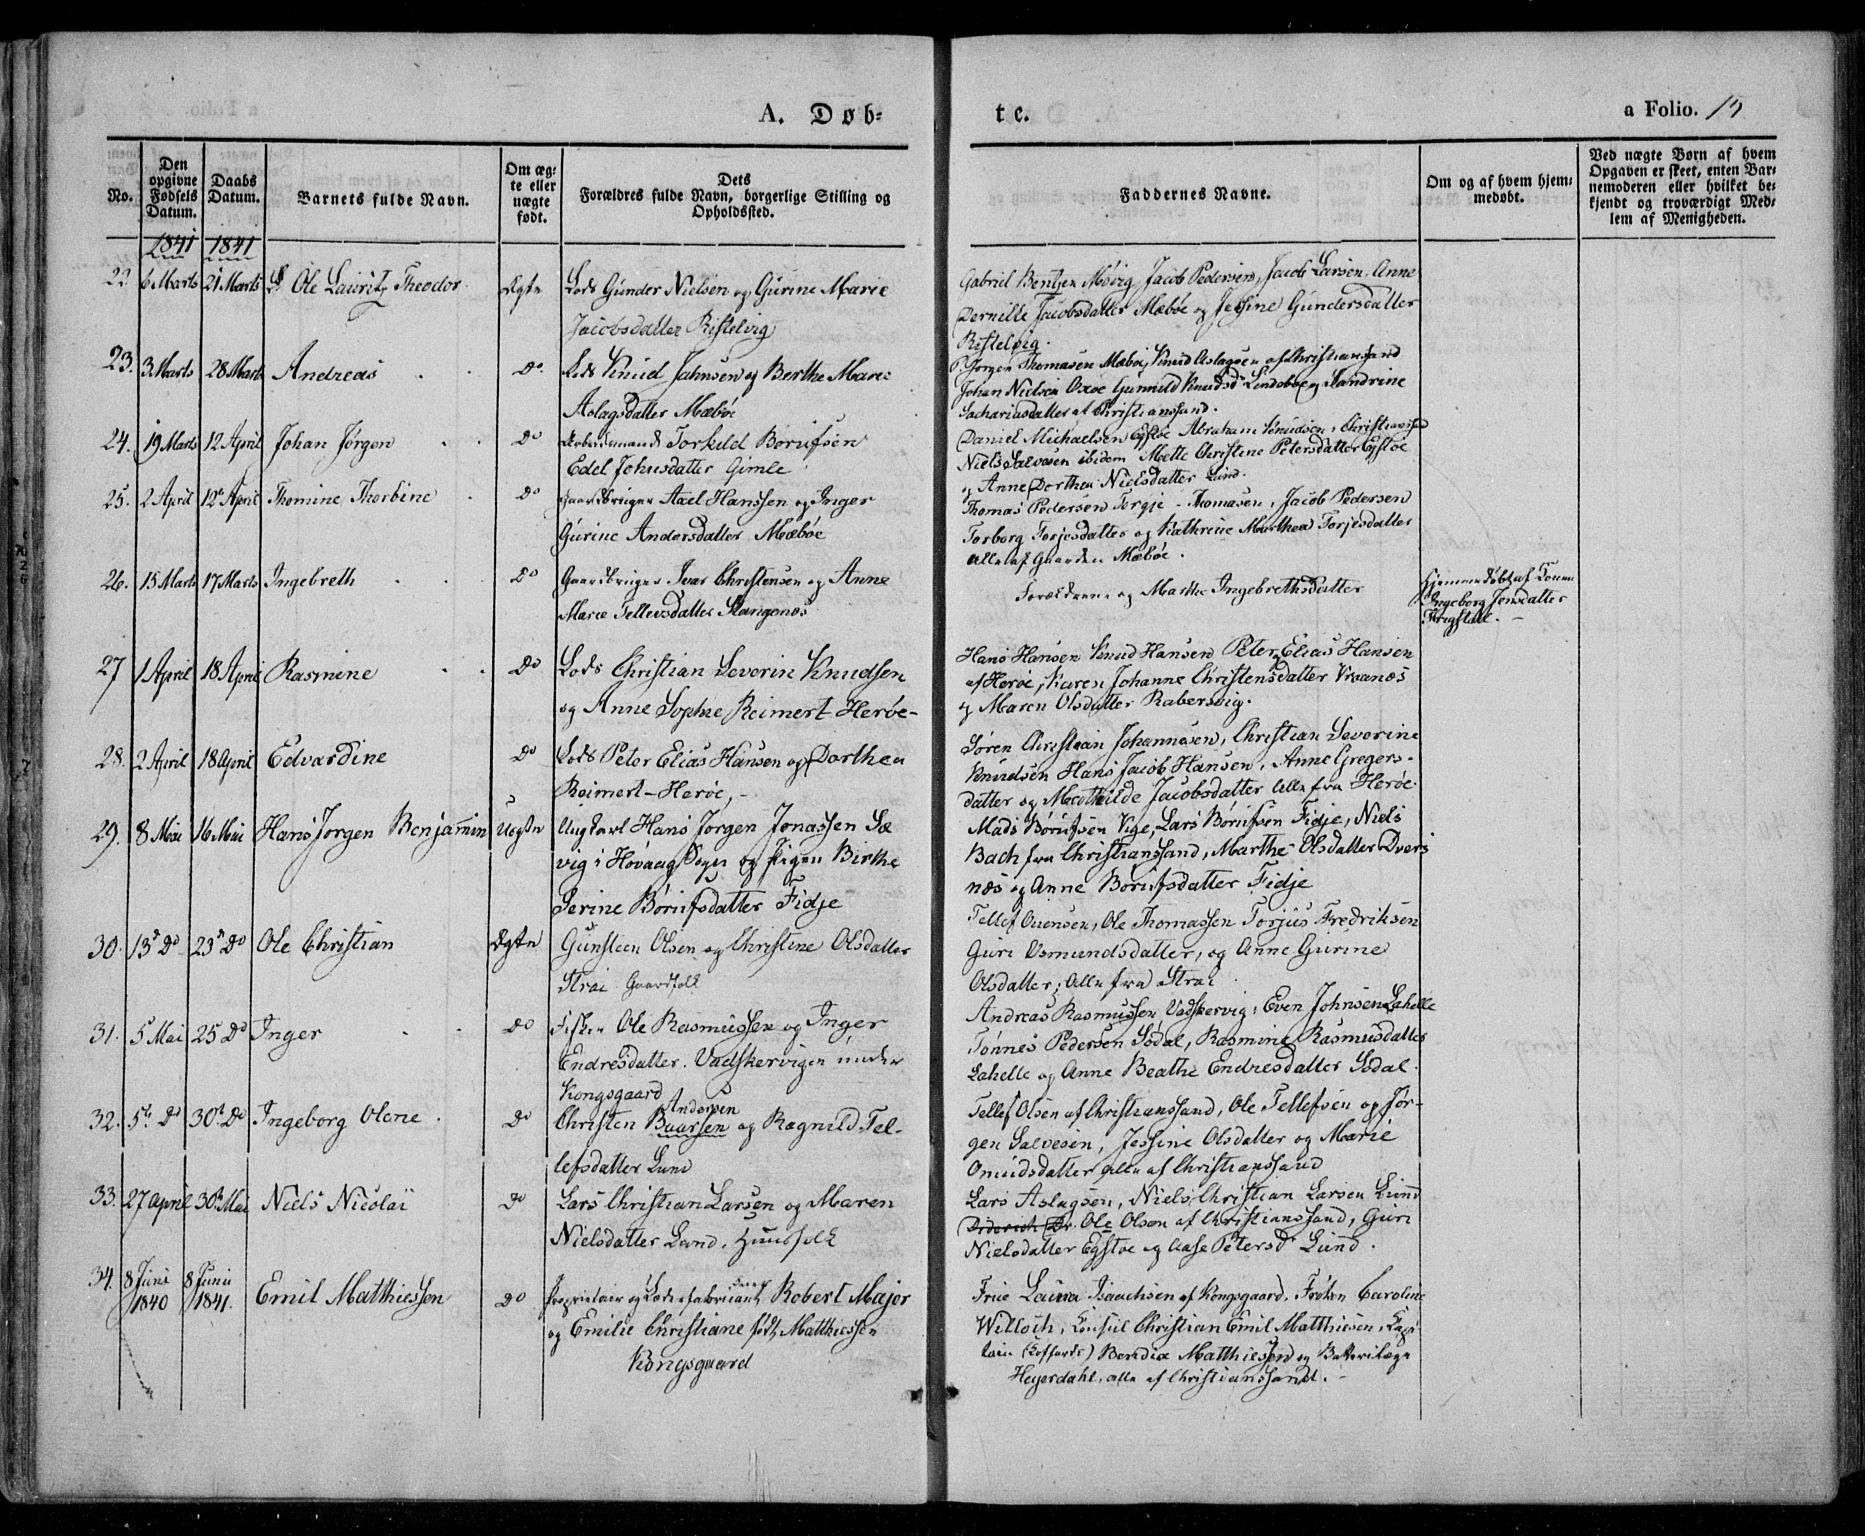 A. Døb-
te.
a Folio. 13
No.
Den opgivne Fødsels Datum.
Daabs Datum.
Barnets fulde Navn.
Om ægte eller uægte født.
Dets
Forældres fulde Navn, borgerlige Stilling og
Opholdssted.
Faddernes Navne.
Om og af hvem hjem-
medøbt.
Ved uægte Børn af hvem
Opgaven er skeet, enten Bar-
nemoderen eller hvilket be-
kjendt og troværdigt Med-
lem af Menigheden.
1841 1841
22 6 Marts 21 Marts Ole Lauritz Theodor Egte Lods Gunder Nielsen og Gurine Marie
Jacobsdatter Ristelvig
Gabriel Bentsen Møvig, Jacob Pedersen, Jacob Larsen, Anne
Pernille Jacobsdatter Mæbøe og Jessine Gundersdatter
Ristelvig.
23. 3 Marts 28 Marts Andreas Do. Lods Knud Jahnsen og Berthe Marie
Aslagsdatter Mæbøe
Jørgen Thomasen Mæbø, Knud Aslagsen af Christianssand
Johan Nielsen Oxøe Gunnild Knudsd. Lindebøe og Sandrine
Sachariasdatter af Christianssand.
24. 19 Marts 12 April Johan Jørgen Do Arbeidsmand Torkild Børufsen
Edel Johnsdatter Gimle
Daniel Michaelsen Egstøe Abraham Knudsen, Christianssand
Niels Salvesen ibidem Mette Christine Petersdatter Egstøe
og Anne Dorthea Nielsdatter Lund.
25. 2 April 12te April Thomine Thorbine Do Gaardbruger Axel Hanssen og Inger
Gurine Andersdatter Mæbøe
Thomas Pedersen Torgje Thomasen, Jacob Pedersen
Torborg Torjesdatter og Kathrine Marthea Torjesdatter
alle af Gaarden Mæbøe.
26. 15 Marts 17 Marts Ingebreth Do Gaardbruger Ivar Christensen og Anne
Marie Tellevsdatter Stangenæs
Forældrene og Marthe Ingebrethsdatter
Hjemmedøbt af Konen
Ingeborg Jensdatter
27 1 April 18 April Rasmine Do Lods Christian Severin Knudsen
og Anne Sophie Reimert Herøe-
Hans Hansen Knud Hansen Peter Elias Hansen
af Herøe, Karen Johanne Christensdatter Vraanæs
og Maren Olsdatter Rabersvig.
28. 2 April 18 April Edvardine Do Lods Peter Elias Hansen og Dorthea
Reimert-Herøe,-
Søren Christian Johannesen, Christian Severine
Knudsen Hans Jacob Hansen, Anne Gregers-
datter og Mathilde Jacobsdatter Alle fra Herøe.
29. 8 Mai 16 Mai Hans Jørgen Benjamin Uegte Ungkarl Hans Jørgen Jonassen Sæ
vig i Høvaag Sogn og Pigen Birthe
Serine Børufsdatter Fidje
Mads Børufsen Vige, Lars Børufsen Fidje, Niels
Bach fra Christianssand, Marthe Olsdatter Dvers
næs og Anne Børufsdatter Fidje
30. 13de Do 23de Do Ole Christian Egte Gunsteen Olsen og Christine Olsdatter
Strai Gaardfolk
Tellef Ouensen, Ole Thomassen Torjus Fredriksen
Guri Osmundsdatter, og Anne Gurine
Olsdatter; Alle fra Strai
31. 5 Mai 25 Do Inger Do Fisker Ole Rasmussen og Inger
Endresdatter. Vadskervigen under
Kongsgaard
Andreas Rasmussen Vadskervig, Even Johnsen Lahelle
Tønnes Pedersen Sødal, Rasmine Rasmusdatter
Lahelle og Anne Beathe Endresdatter Sødal.
32. 5te Do 30te Do Ingeborg Olene Do Andersen
Christen Baarsen og Ragnild Tel-
lefsdatter Lund
Tellef Olsen af Christianssand, Ole Tellefsen og Jør-
gen Salvesen, Jessine Olsdatter og Marie
Omundsdatter alle af Christianssand
33. 27 April 30te Mai Niels Nicolai Do Lars Christian Larsen og Maren
Nielsdatter Lund. Huusfolk
Lars Aslagsen, Niels Christian Larsen Lund
Ole Olsen af Christianssand, Guri
Nielsdatter Egstøe og Aase Petersd Lund.
34. 8 Juni 1840 8 Juni 1841. Emil Matthiessen Do Proprietair og Læderfabricant Robert Major
og Emilie Christiane født Matthiessen
Kongsgaard
Frue Laura Isaachsen af Kongsgaard, Frøken Caroline
Willoch, Konsul Christian Emil Matthiesen, Kap-
tain Beredia Matthiesen og Batterilæge
Heyerdahl, alle af Christianssand.-